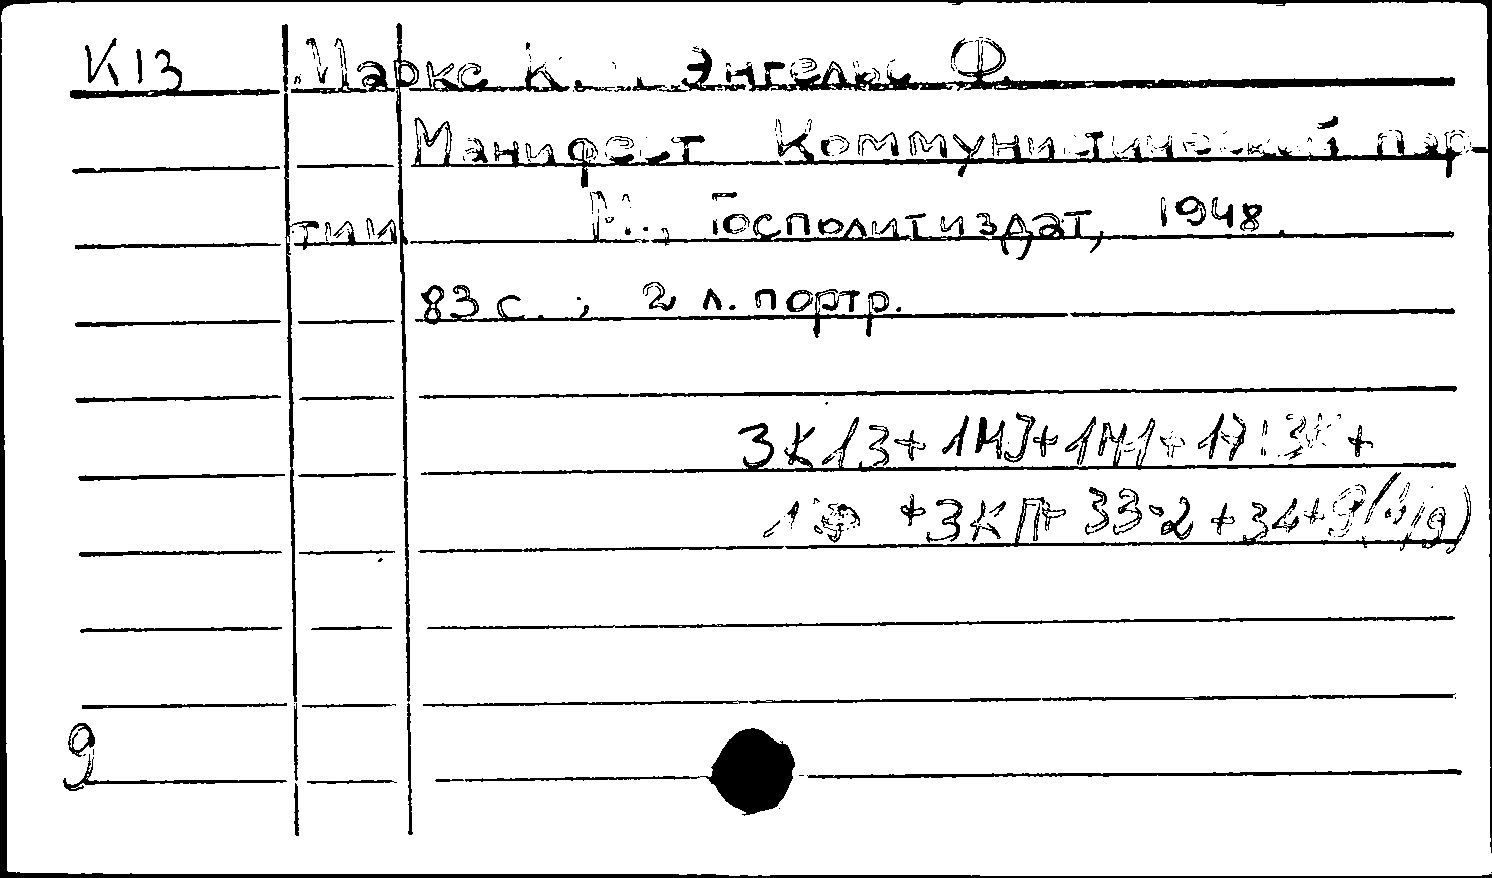 К13 Маркс К. и Энгельс Ф.
Манифест Коммунистической пар-
тии М., Госполитиздат, 1948.
83 с. ; 2 л. портр.
3К13+1МJ+1М1+17:3К+
+3КП+33-2+34+9
9